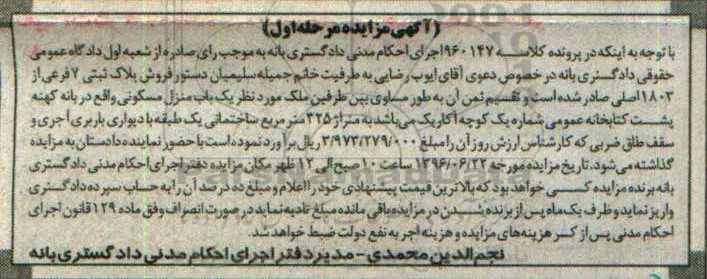 (آگهی مزایده مرحله اول)
با توجه به اینکه در پرونده کلاسه ۹۶۰۱۴۷ اجرای احکام مدنی دادگستری بانه به موجب رای صادره از شعبه اول دادگاه عمومی
حقوقی دادگستری بانه در خصوص دعوی آقای ایوب رضایی به طرفیت خانم جمیله سلیمیان دستور فروش پلاک ثبتی ۷ فرعی از
۱۸۰۳ اصلی صادر شده است و تقسیم ثمن آن به طور مساوی بین طرفین ملک مورد نظر یک باب منزل مسکونی واقع در بانه کهنه
پشت کتابخانه عمومی شماره یک کوچه آکاریک می باشد به متراژ ۳۲۵ متر مربع ساختمانی یک طبقه با دیواری باربری آجری و
سقف طاق ضربی که کارشناس ارزش روز آن را مبلغ ۳/۹۷۳/۲۷۹/۰۰۰ ریال برآورد نموده است با حضور نماینده دادستان به مزایده
گذاشته می شود. تاریخ مزایده مورخه ۱۳۹۶/۰۶/۲۲ ساعت ۱۰ صبح الی ۱۲ ظهر مکان مزایده دفتر اجرای احکام مدنی دادگستری
بانه برنده مزایده کسی خواهد بود که بالاترین قیمت پیشنهادی خود را اعلام و مبلغ ده درصد آن را به حساب سپرده دادگستری
واریز نماید و ظرف یک ماه پس از برنده شدن در مزایده باقی مانده مبلغ تادیه نماید در صورت انصراف وفق ماده ۱۲۹ قانون اجرای
احکام مدنی پس از کسر هزینه های مزایده و هزینه اجر به نفع دولت ضبط خواهد شد.
نجم الدین محمدی - مدیر دفتر اجرای احکام مدنی دادگستری بانه